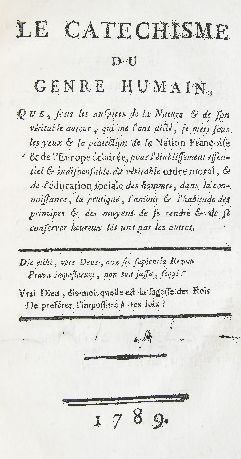 LE CATECHISME
DU
GENRE HUMAIN,
QUE, sous les auspices de la Nature & de son
véritable auteur, qui me l'ont dicté, je mets sous
les yeux & la protection de la Nation Françoise
& de l'Europe éclairée, pour l'établissement essen-
tiel & indispensable du véritable ordre moral, &
de l'éducation sociale des hommes, dans la con-
noissance, la pratique, l'amour & l'habitude des
principes & des moyens de se rendre & de se
conserver heureux les uns par les autres.
Dic mihi, vere Deus, quæ sit sapientia Regum
Prava
Vrai Dieu, dis-moi quelle est la sagesse des Rois
De préférer l'imposture à tes loix?
1789.